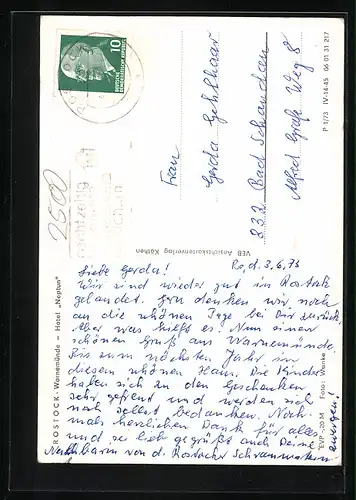 Ro, d. 3.6.73
Liebe Gerda!
Wir sind wieder gut in Rostock
gelandet. Gern denken wir noch
an die schönen Tage bei Dir zurück.
Aber was hilft es! Nun einen
schönen Gruß aus Warnemünde.
Bis zum nächsten Jahr in
diesem schönen Haus. Die Kinder
haben sich zu den Geschenken
sehr gefreut und werden sich
noch selbst bedanken. Noch-
mals herzlichen Dank für alles
und sei lieb gegrüßt auch Deine
Nachbarin von d. Rostocker
zwergen!
Frau
Gerda
832 Bad Schandau
Alfred Graf Weg 8
2500
10
DEUTSCHE DEMOKRATISCHE REPUBLIK
ROSTOCK-Warnemünde – Hotel „Neptun"
VEB Ansichtskartenverlag Köthen
EVP -,20 M Foto: Wanke
P 1/73 IV-14-45 06 01 31 217